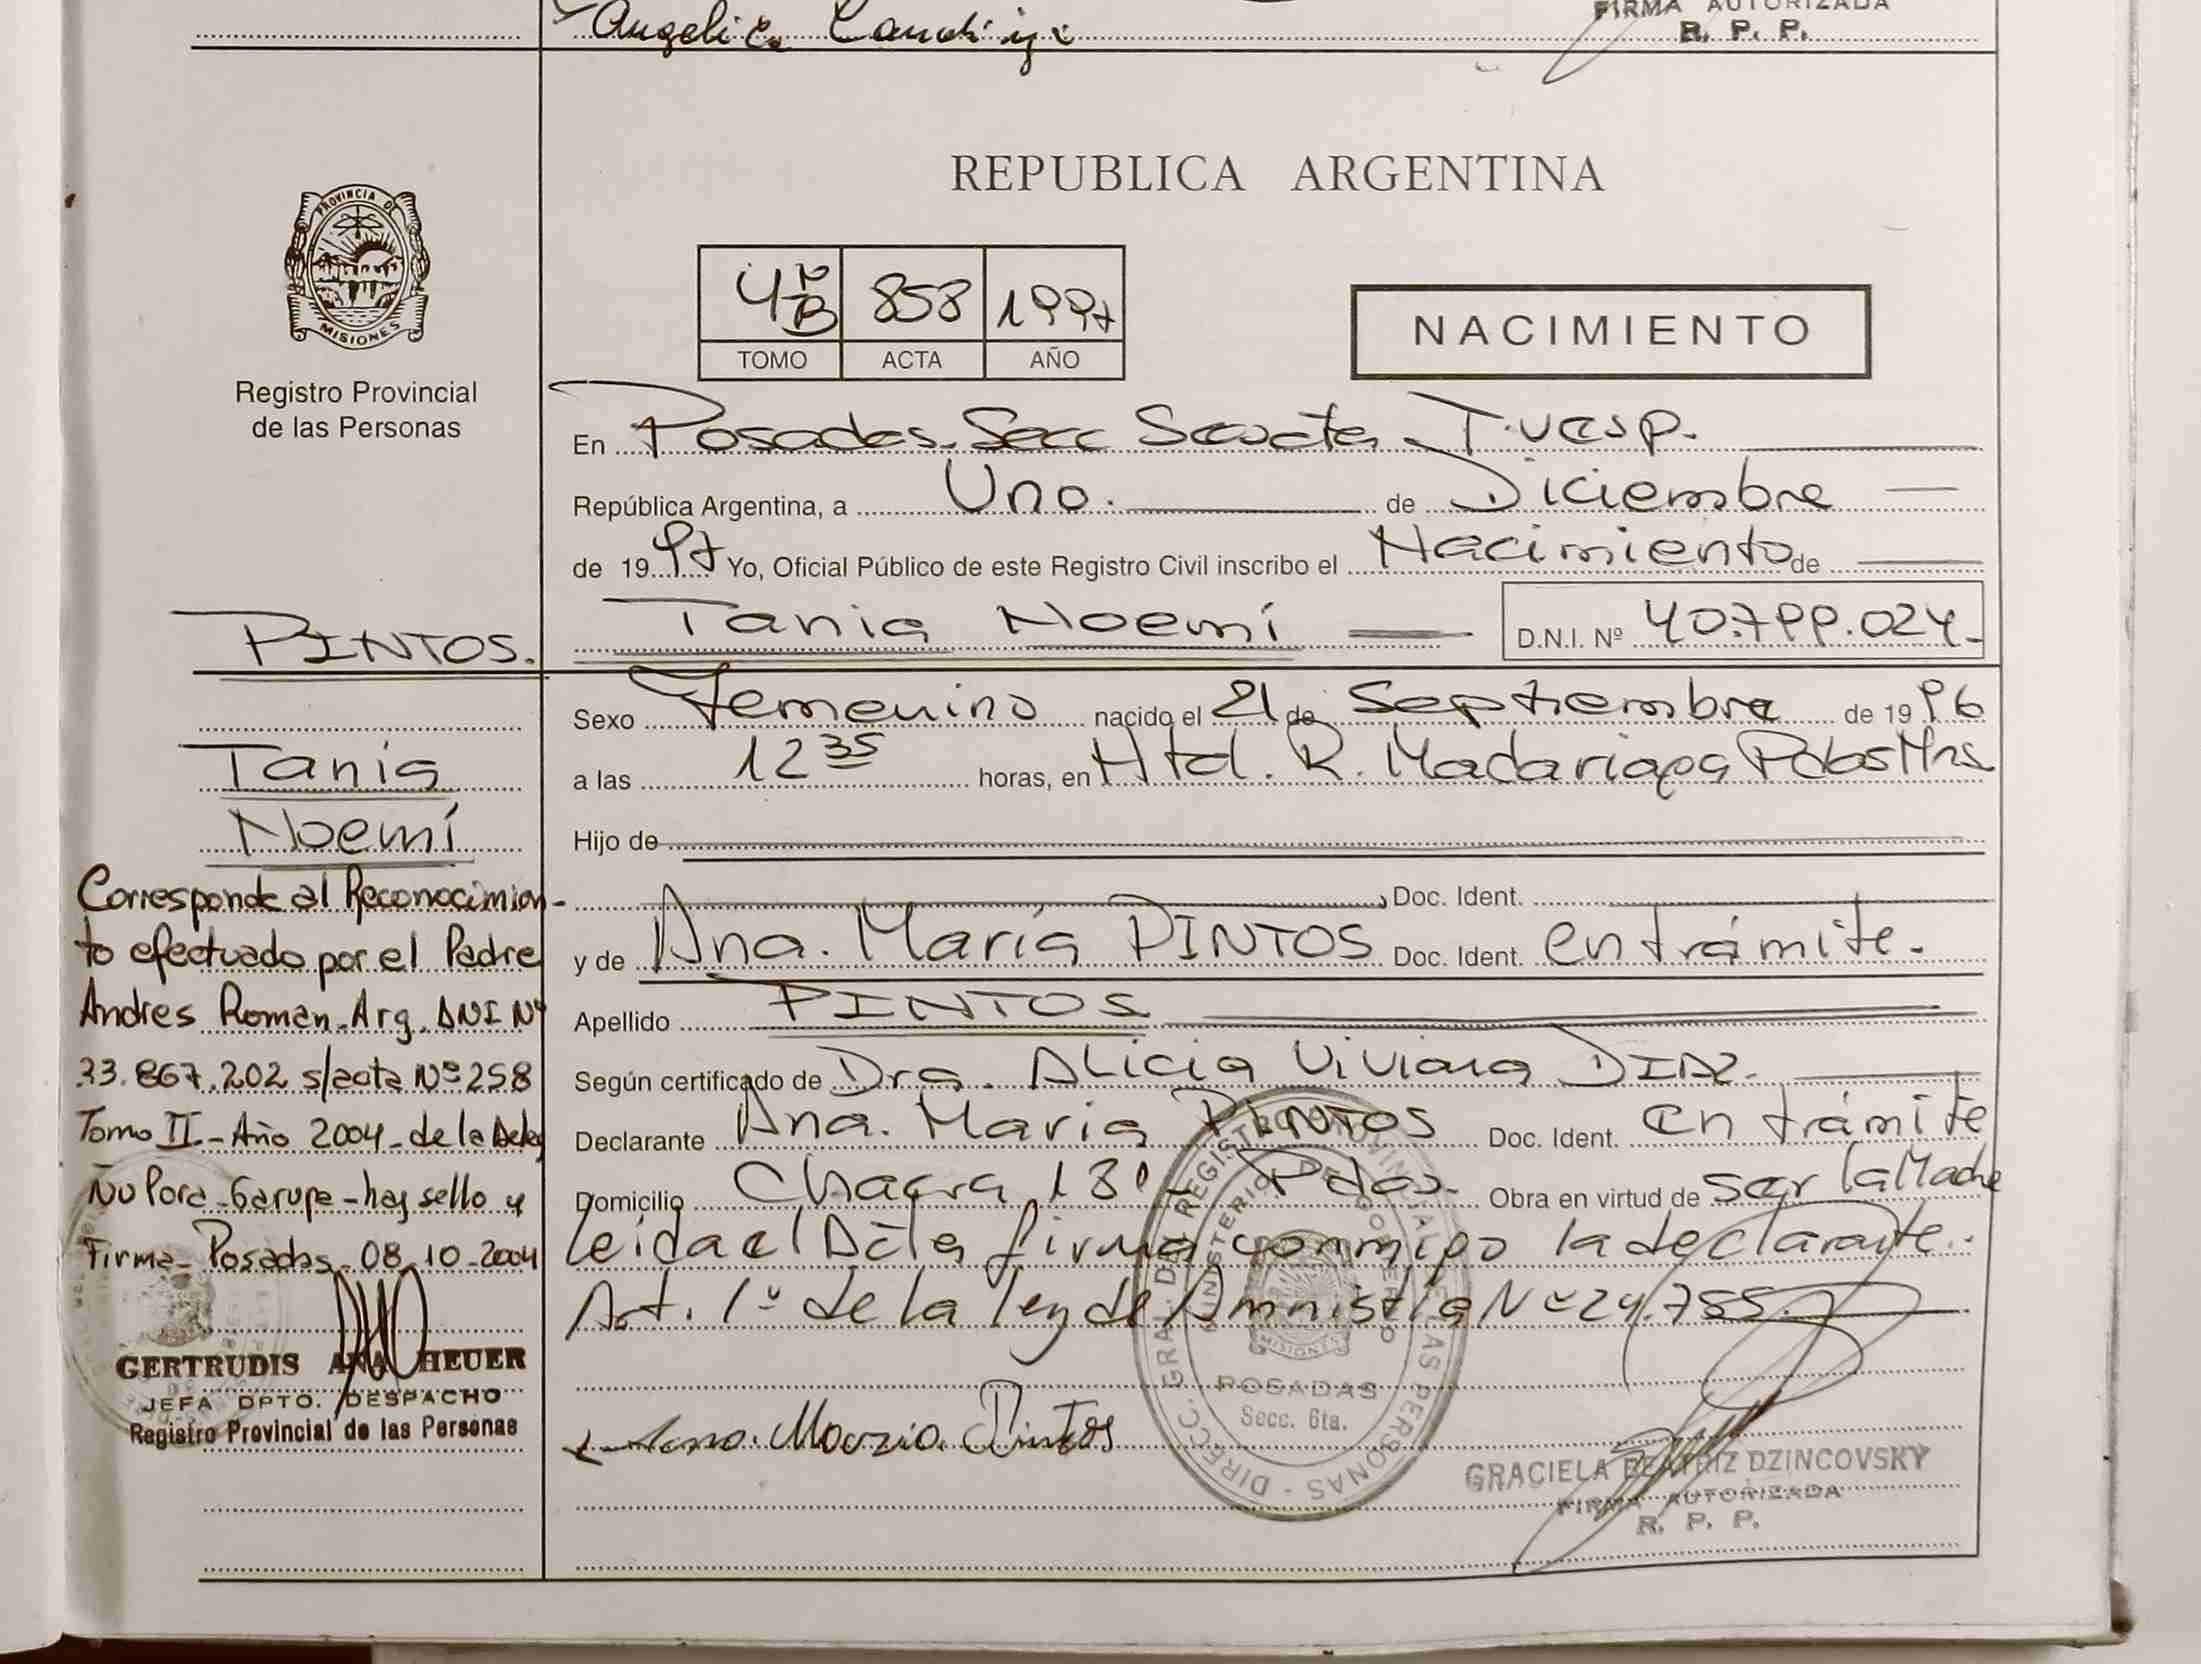 Angelica
FIRMA AUTORIZADA
R. P. P.
PROVINCIA DE
MISIONES
Registro Provincial
de las Personas
REPUBLICA ARGENTINA
4º B 858 1997
TOMO ACTA AÑO
NACIMIENTO
En Posadas. Secc Sexta T. Vesp.
República Argentina, a Uno. de Diciembre
de 1997 Yo, Oficial Público de este Registro Civil inscribo el Nacimiento de
Tania Noemí D.N.I. Nº 40.799.024-
PINTOS.
Tania
Noemí
Sexo Femenino nacido el 21 de Septiembre de 1996
a las 12 35 horas, en Htal. R. Madariaga Pdas Mns
Hijo de
Doc. Ident.
y de Ana. María PINTOS Doc. Ident. en trámite.
Apellido PINTOS
Según certificado de Dra. Alicia Viviana DIAZ.
Declarante Ana. María PINTOS Doc. Ident. en trámite
Domicilio Chacra 131 - Pdas. Obra en virtud de ser la Madre
leida el Acta firma conmigo la declarante.
Art. 1º de la ley de Amnistía Nº 24.755.
Corresponde al Reconocimien-
to efectuado por el Padre
Andres Roman. Arg. DNI Nº
33.867.202 s/acta Nº 258
Tomo II - Año 2004 - de la Deleg
Ñu Pora - Garupa - hay sello y
Firma - Posadas - 08-10-2004
GERTRUDIS ANA HEUER
JEFA DPTO. DESPACHO
Registro Provincial de las Personas
Ana. Maria Pintos
DIRECC. GRAL. DEL REGISTRO PROVINCIAL DE LAS PERSONAS
MINISTERIO DE GOBIERNO
MISIONES
POSADAS
Secc. 6ta.
GRACIELA BEATRIZ DZINCOVSKY
FIRMA AUTORIZADA
R. P. P.